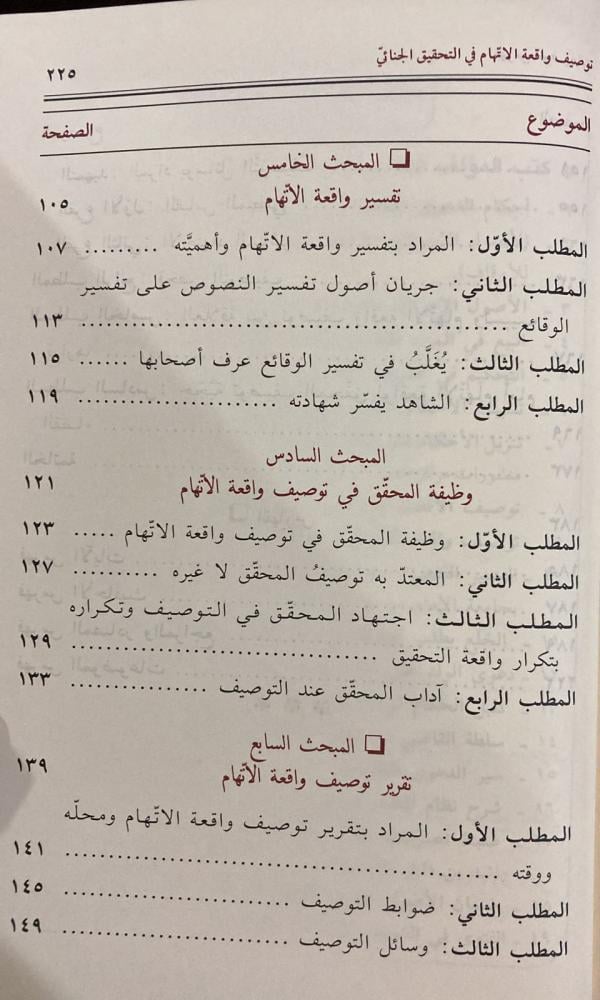 توصيف واقعة الاتّهام في التحقيق الجنائيّ ٢٢٥
الموضوع الصفحة
❑ المبحث الخامس
تفسير واقعة الاتّهام ١٠٥
المطلب الأوّل: المراد بتفسير واقعة الاتّهام وأهميَّته ......... ١٠٧
المطلب الثاني: جريان أصول تفسير النصوص على تفسير
الوقائع ............................................. ١١٣
المطلب الثالث: يُغَلَّبُ في تفسير الوقائع عرف أصحابها ...... ١١٥
المطلب الرابع: الشاهد يفسّر شهادته ........................ ١١٩
المبحث السادس
وظيفة المحقّق في توصيف واقعة الاتّهام ١٢١
المطلب الأوّل: وظيفة المحقّق في توصيف واقعة الاتّهام ..... ١٢٣
المطلب الثاني: المعتدّ به توصيفُ المحقّق لا غيره .......... ١٢٧
المطلب الثالث: اجتهاد المحقّق في التوصيف وتكراره
بتكرار واقعة التحقيق ................................. ١٢٩
المطلب الرابع: آداب المحقّق عند التوصيف ................ ١٣٣
❑ المبحث السابع
تقرير توصيف واقعة الاتّهام ١٣٩
المطلب الأول: المراد بتقرير توصيف واقعة الاتّهام ومحلّه
ووقته ............................................. ١٤١
المطلب الثاني: ضوابط التوصيف ........................... ١٤٥
المطلب الثالث: وسائل التوصيف ........................... ١٤٩